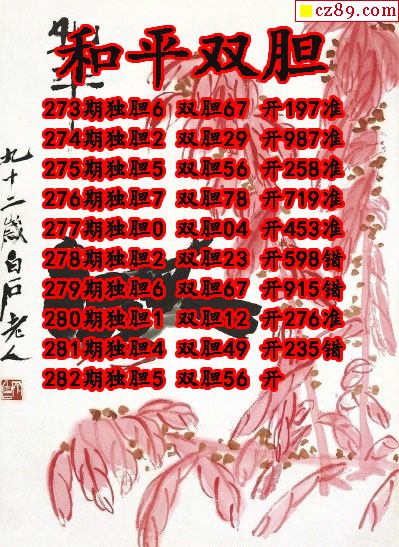 cz89.com
和平双胆
273期独胆6 双胆67 开197准
274期独胆2 双胆29 开987准
275期独胆5 双胆56 开258准
276期独胆7 双胆78 开719准
277期独胆0 双胆04 开453准
278期独胆2 双胆23 开598错
279期独胆6 双胆67 开915错
280期独胆1 双胆12 开276准
281期独胆4 双胆49 开235错
282期独胆5 双胆56 开
九十二岁白石老人